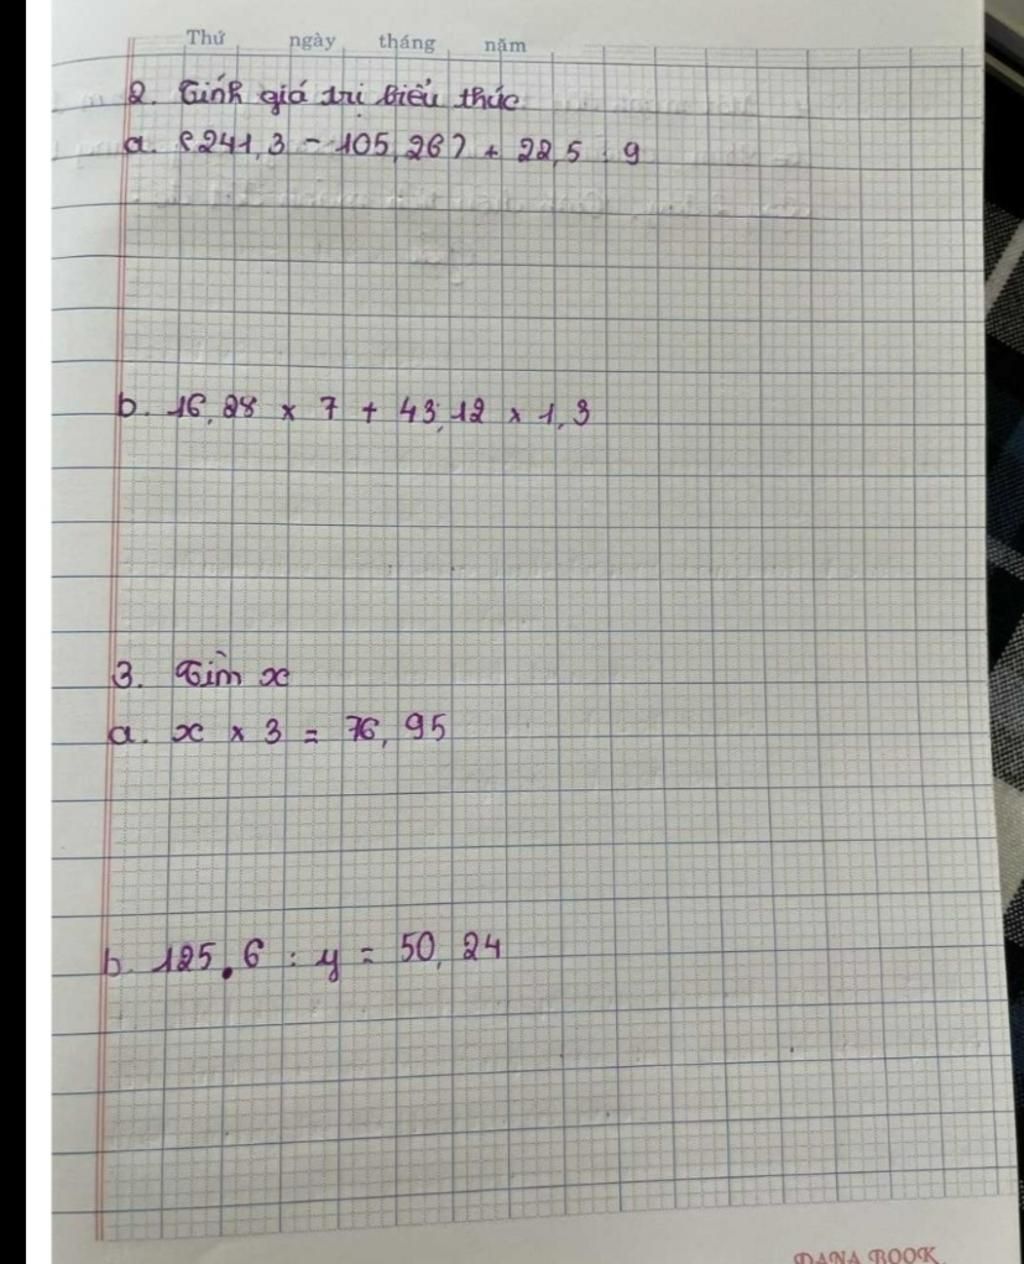 Thứ ngày tháng năm
2. Tính giá trị biểu thức
a. (241,3 - 105,26) + 22,5 : 9
b. 16,28 x 7 + 43,12 x 1,3
3. Tìm x
a. x x 3 = 76,95
b. 125,6 : y = 50,24
DANA BOOK